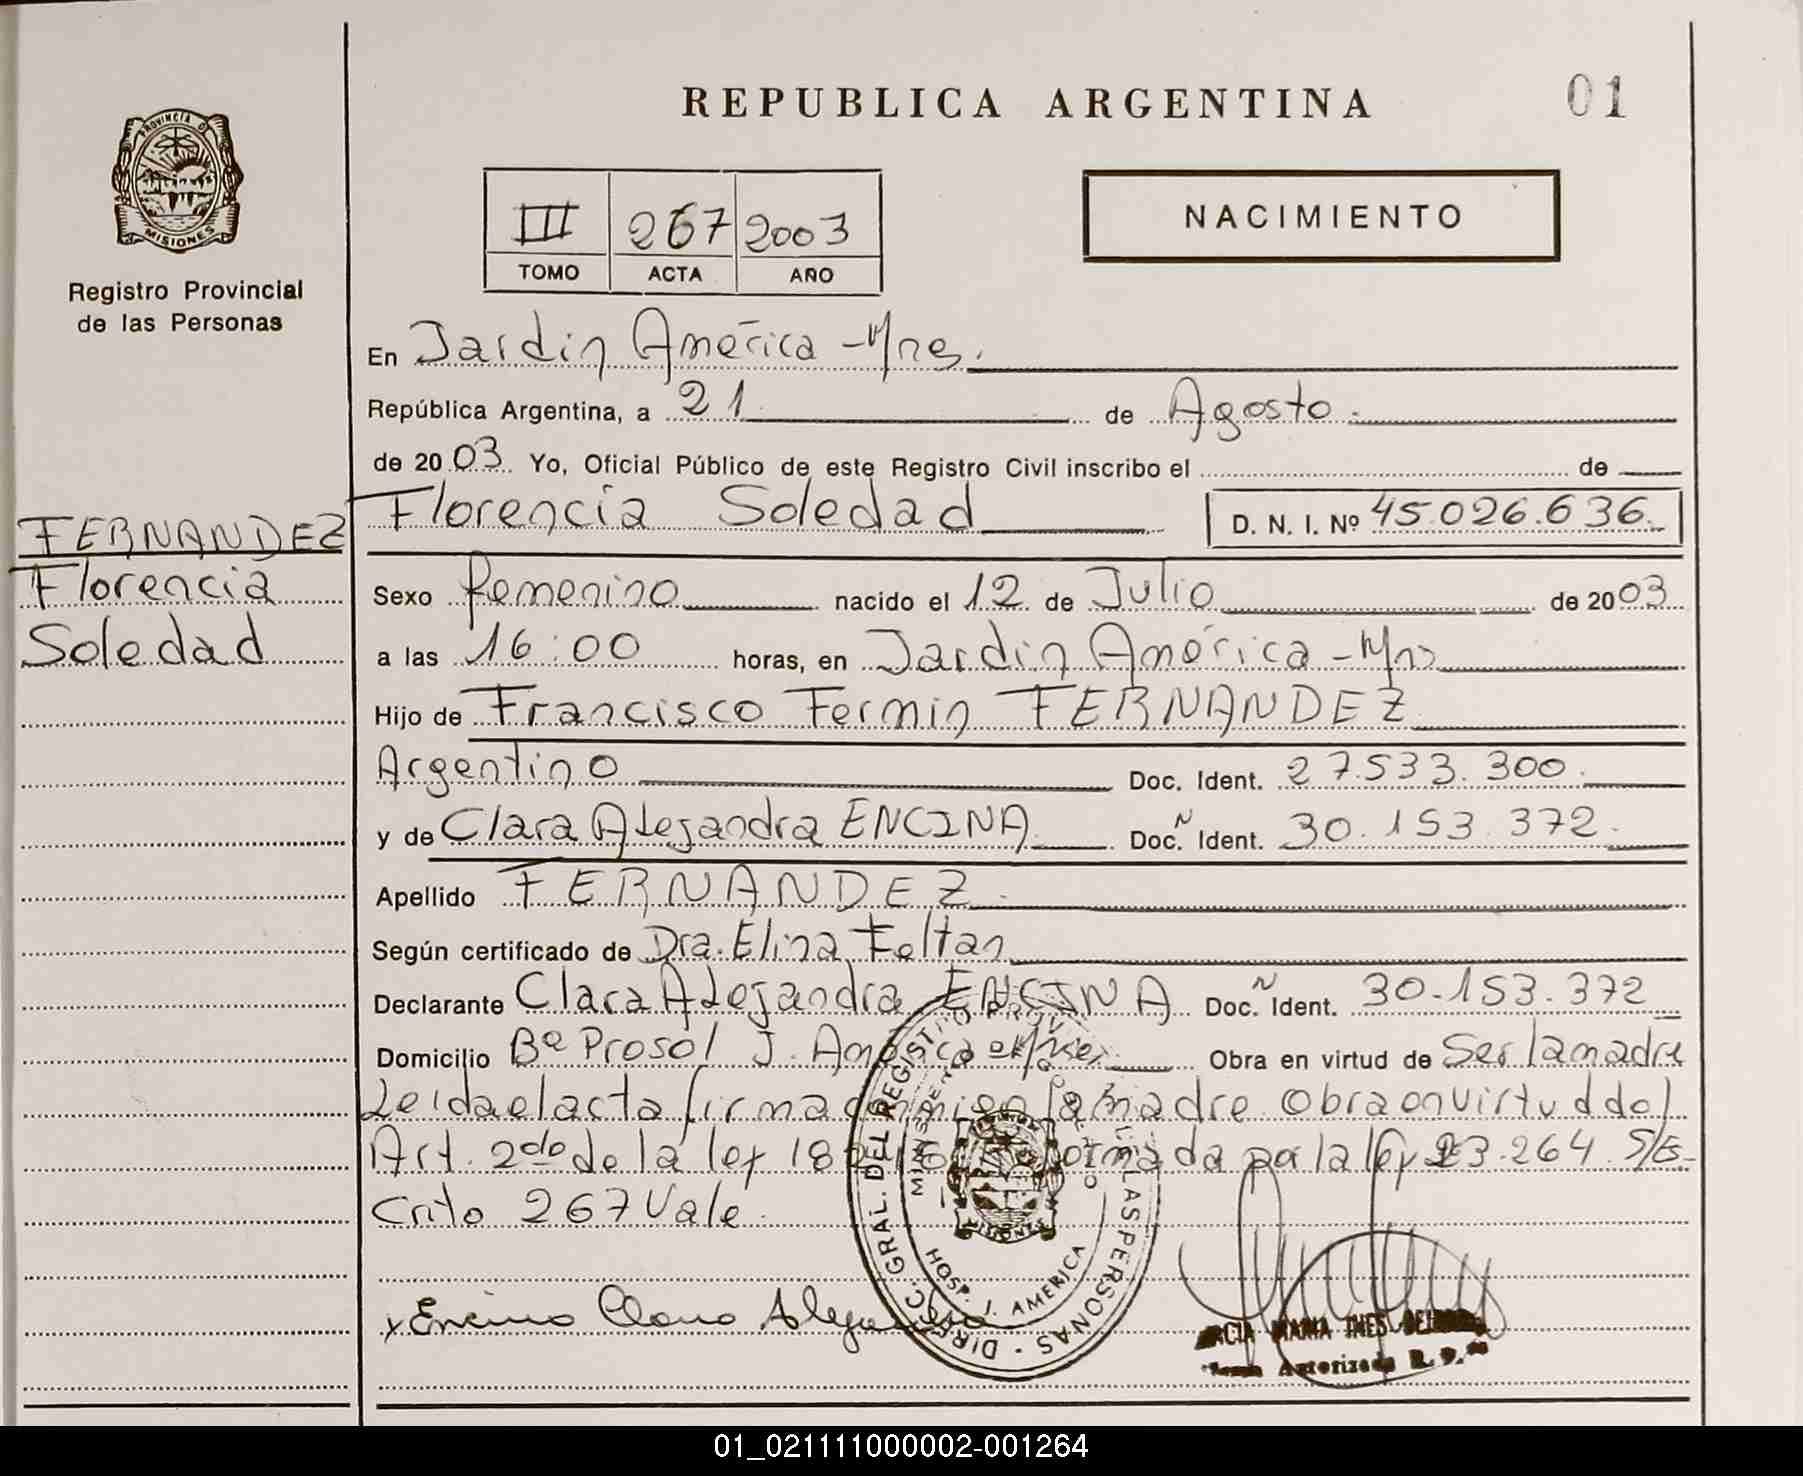 REPUBLICA ARGENTINA
01
PROVINCIA D
MISIONES
Registro Provincial
de las Personas
III 267 2003
TOMO ACTA AÑO
NACIMIENTO
En Jardin América - Mnes.
República Argentina, a 21 de Agosto.
de 2003 Yo, Oficial Público de este Registro Civil inscribo el de
Florencia Soledad D. N. I. Nº 45.026.636.
FERNANDEZ
Florencia
Soledad
Sexo femenino nacido el 12 de Julio de 2003
a las 16:00 horas, en Jardin América - Mns
Hijo de Francisco Fermin FERNANDEZ
Argentino Doc. Ident. 27.533.300.
y de Clara Alejandra ENCINA Doc. N Ident. 30.153.372.
Apellido FERNANDEZ.
Según certificado de Dra. Elina Feltan
Declarante Clara Alejandra ENCINA Doc. N Ident. 30.153.372
Domicilio Bº Prosol J. América Obra en virtud de Ser la madre
Leida el acta firma la madre Obra en virtud del
Art. 2do de la ley 18 por la ley 23.264. S/Es-
crito 267 Vale.
x Encina Clara Alejandra
DIRECC. GRAL. DEL REGISTRO PROVINCIAL DE LAS PERSONAS
HOSP. J. AMERICA
MISIONES
MARIA INES
Autorizada R. P.
01_021111000002-001264